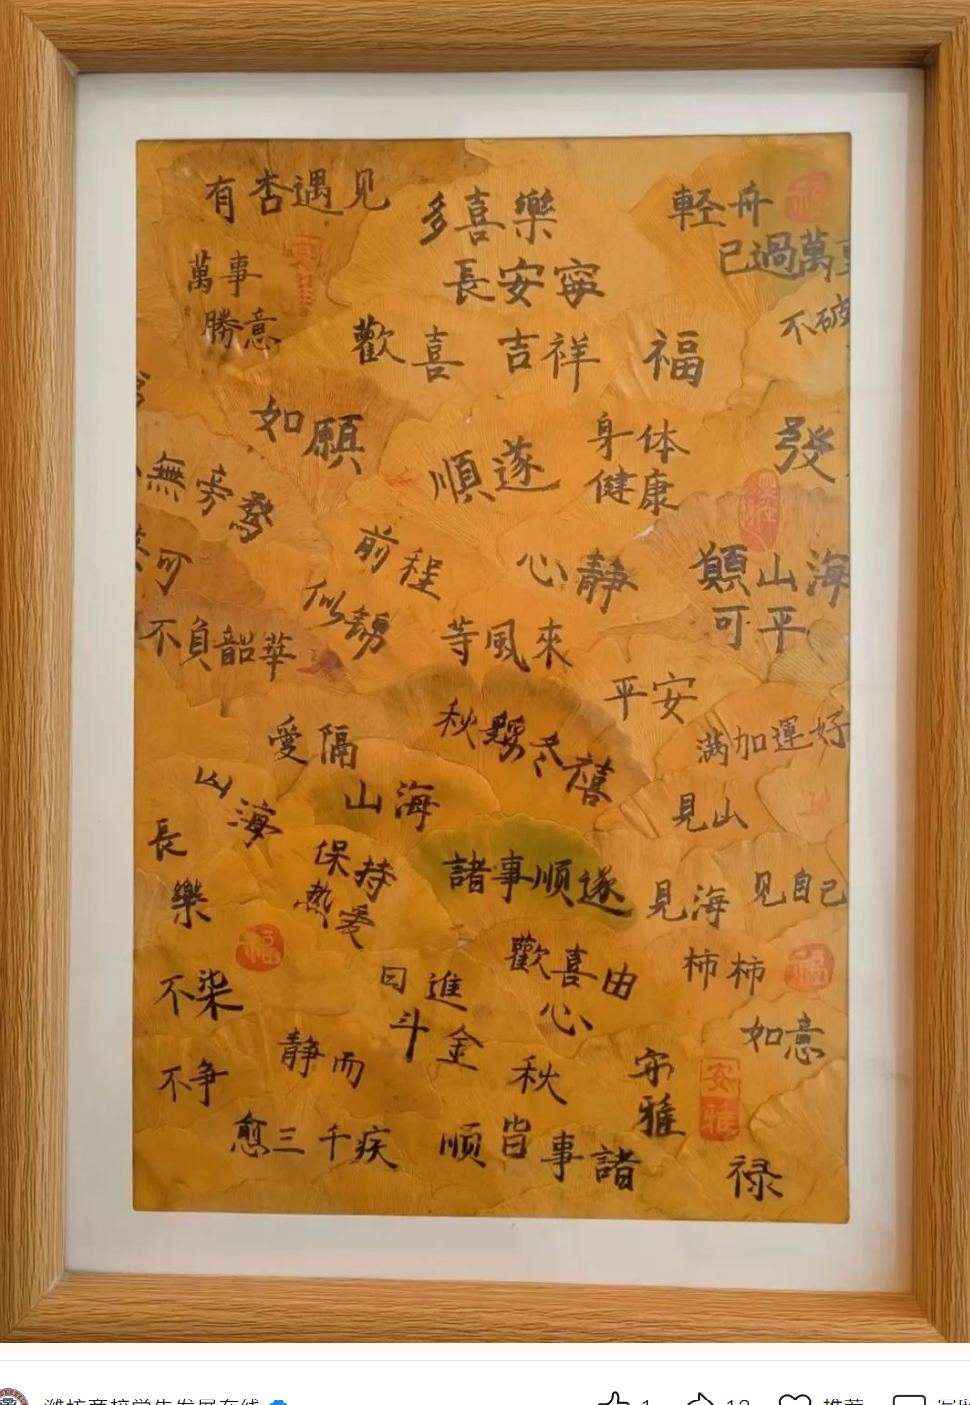 有杏遇见
多喜樂
長安寧
輕舟
已過萬
萬事
勝意
不破
歡喜
吉祥
福
如願
順遂
身体
健康
發
無旁鶩
前程
似錦
心静
願山海
可平
可
不負韶華
等風來
平安
秋
冬禧
满加運好
愛隔
山海
山海
見山
長
樂
保持
热爱
諸事顺遂
見海
见自己
福
歡喜由
心
柿柿
如意
福
不染
日進
斗金
不争
静而
秋
安
雅
安雅
愈三千疾
顺皆事諸
禄
1
12
推荐